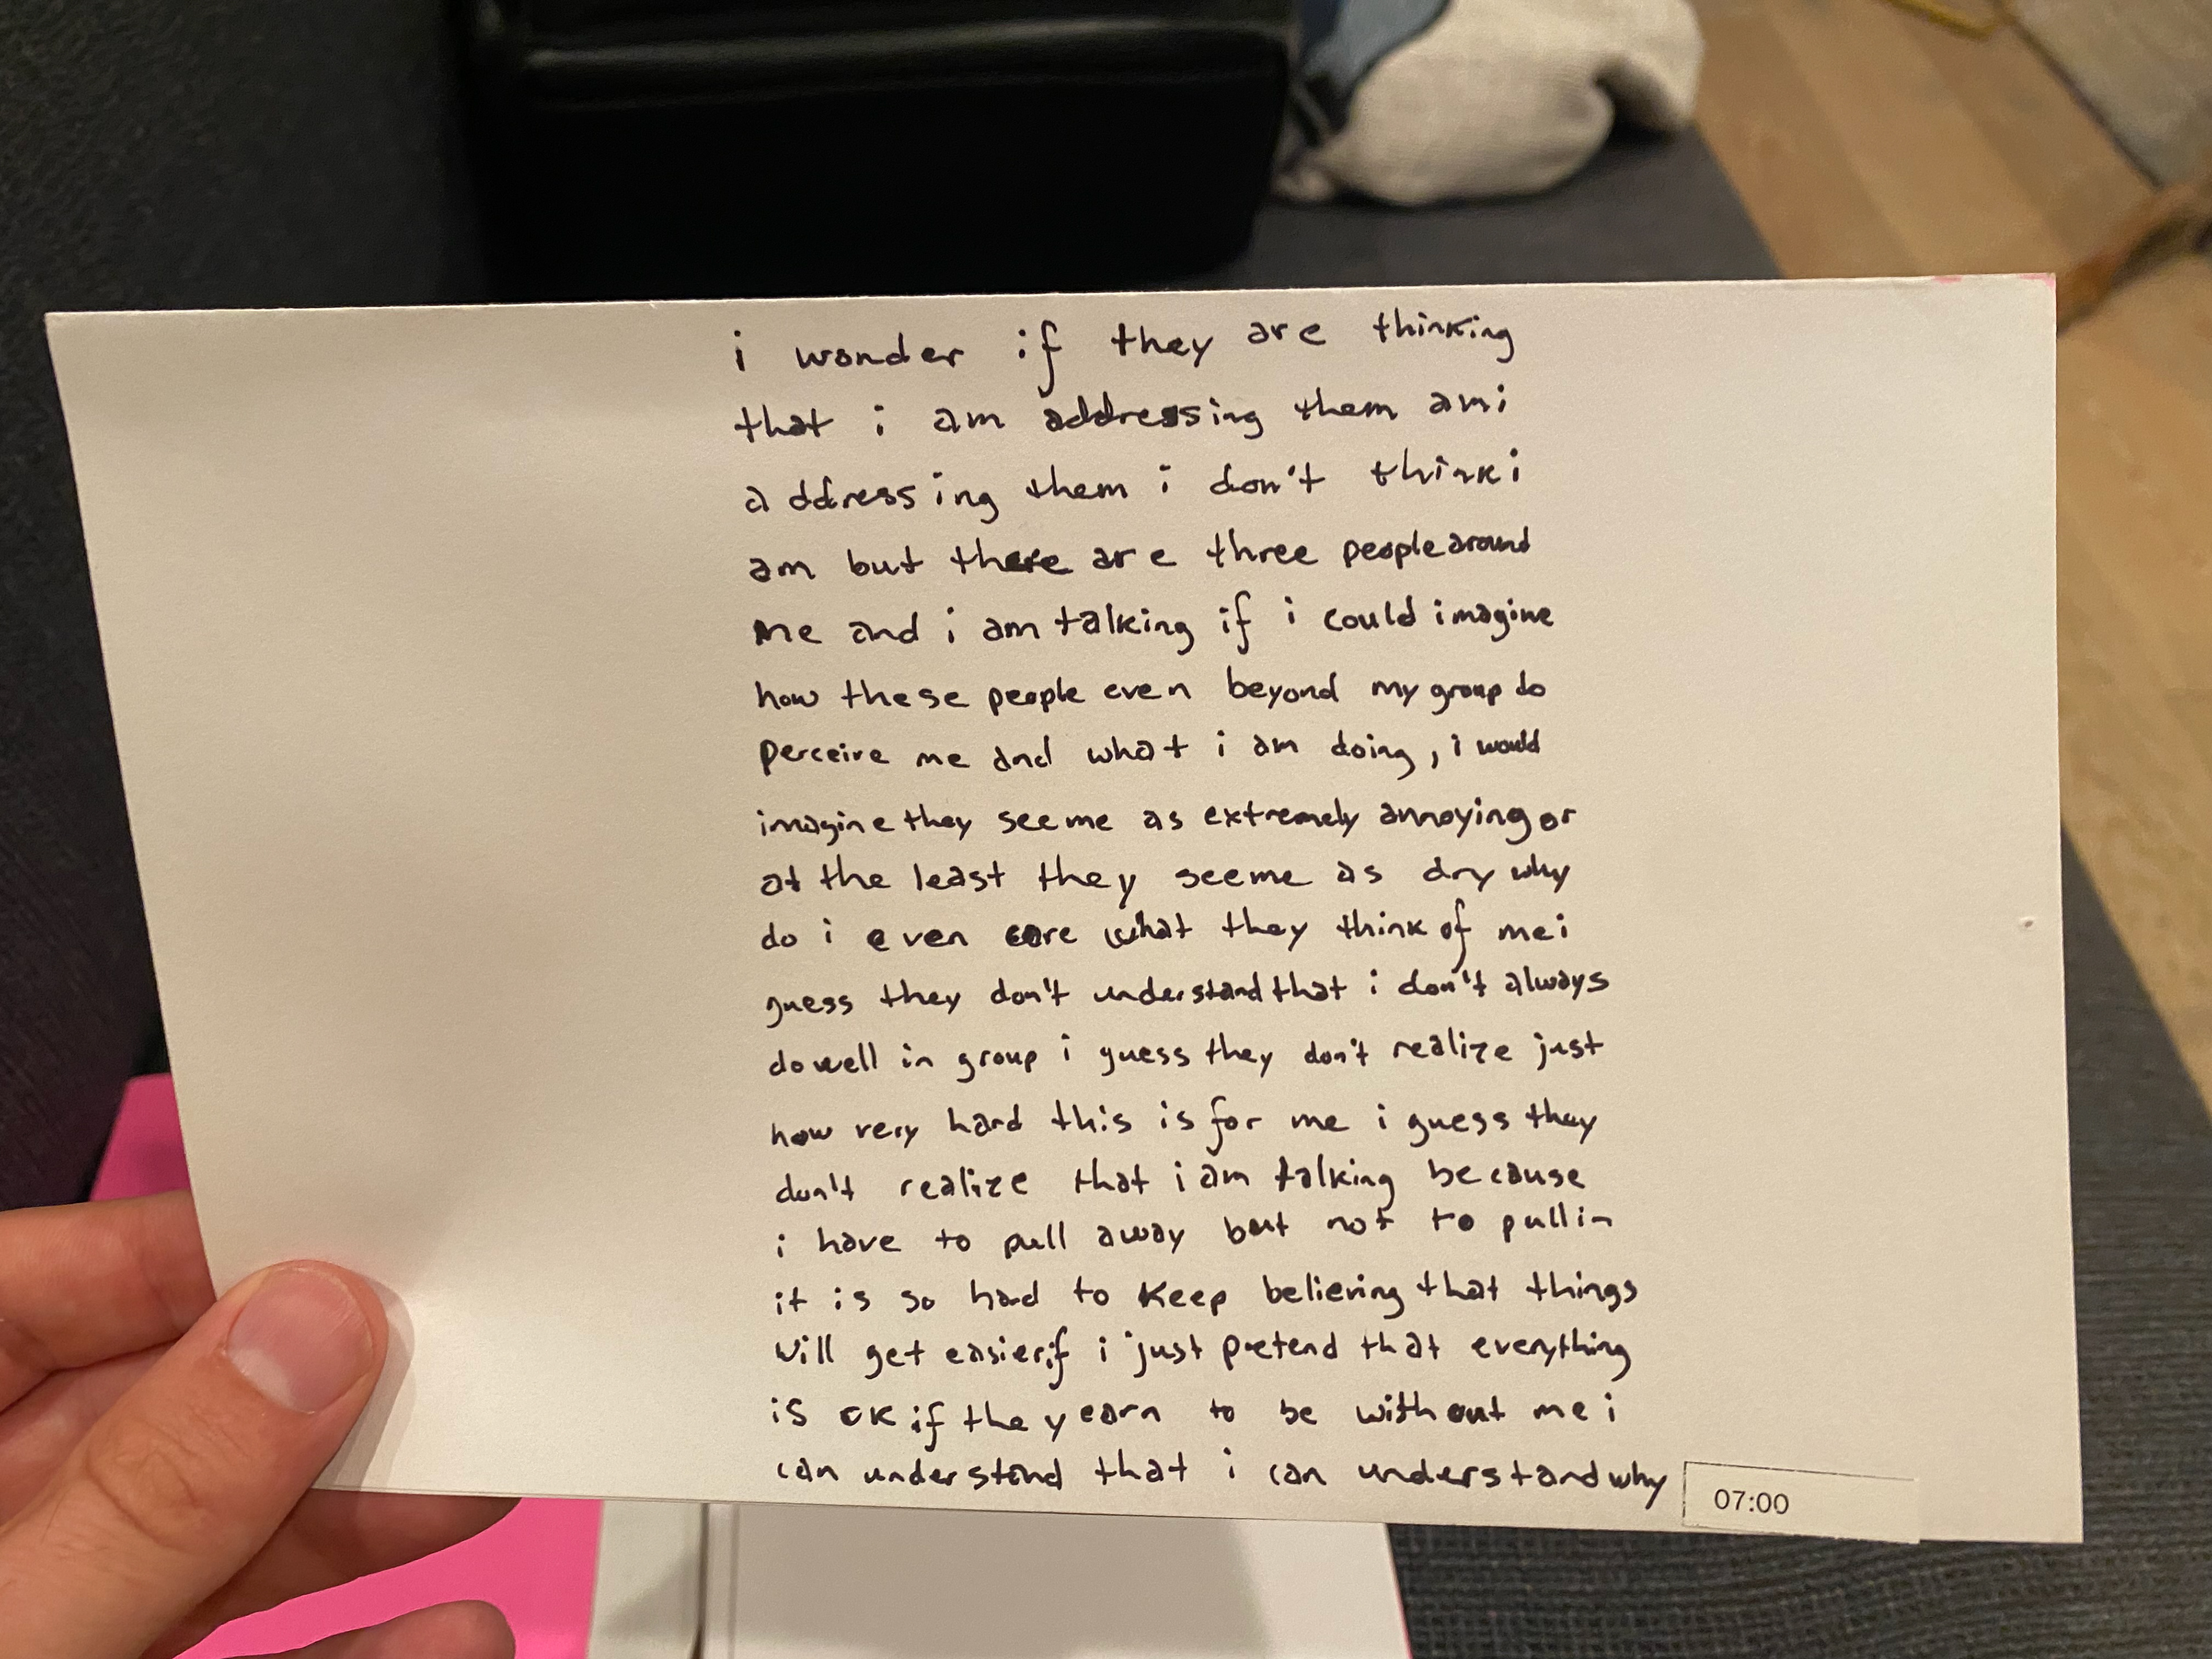 i wonder if they are thinking
that i am addressing them am i
addressing them i don't think i
am but there are three people around
me and i am talking if i could imagine
how these people even beyond my group do
perceive me and what i am doing, i would
imagine they see me as extremely annoying or
at the least they see me as dry why
do i even care what they think of me i
guess they don't understand that i don't always
do well in group i guess they don't realize just
how very hard this is for me i guess they
don't realize that i am talking because
i have to pull away but not to pull in
it is so hard to keep believing that things
will get easier if i just pretend that everything
is ok if they earn to be without me i
can understand that i can understand why
07:00